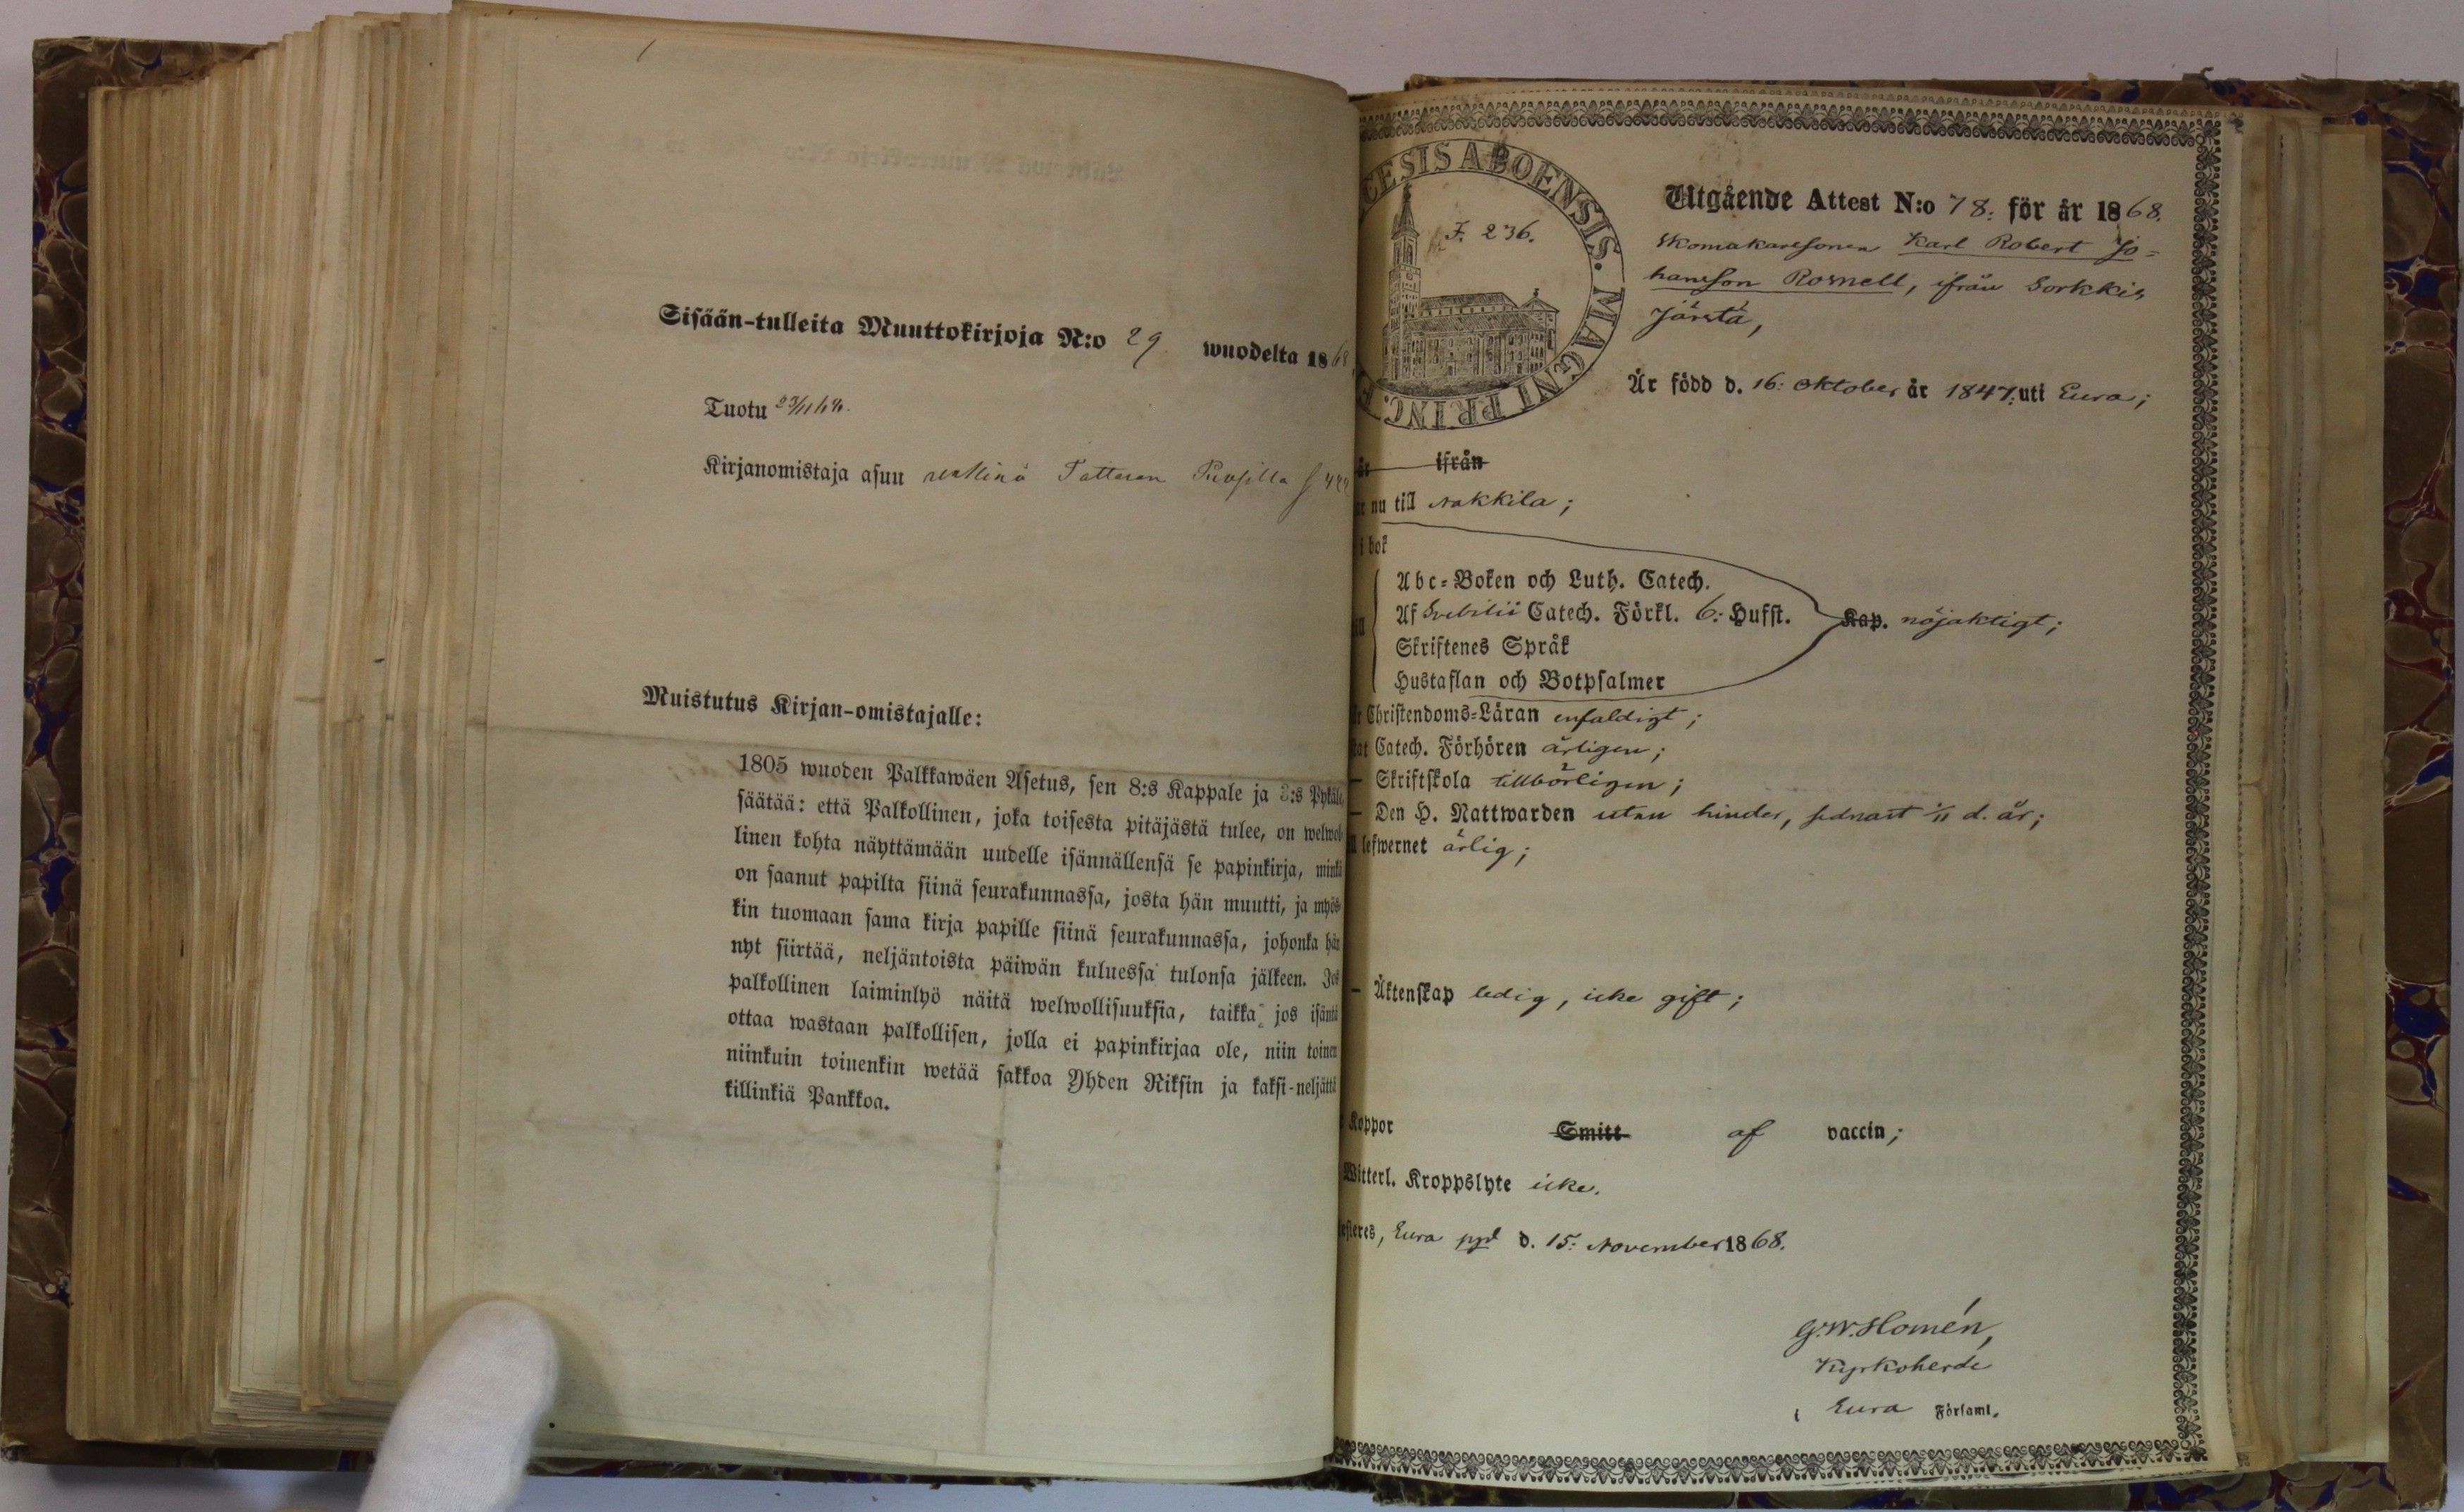 Sisään-tulleita Muuttokirjoja N:o 29 wuodelta 1868
Tuotu 23/11 68.
Kirjanomistaja asuu Tattaran
Muistutus Kirjan-omistajalle:
1805 wuoden Palkkawäen Asetus, sen 8:s Kappale ja 3:s Pykälä
säätää: että Palkollinen, joka toisesta pitäjästä tulee, on welwol-
linen kohta näyttämään uudelle isännällensä se papinkirja, minkä
on saanut papilta siinä seurakunnassa, josta hän muutti, ja myös-
kin tuomaan sama kirja papille siinä seurakunnassa, johonka hän
nyt siirtää, neljäntoista päiwän kuluessa tulonsa jälkeen. Jos
palkollinen laiminlyö näitä welwollisuuksia, taikka jos isäntä
ottaa wastaan palkollisen, jolla ei papinkirjaa ole, niin toinen
niinkuin toinenkin wetää sakkoa Yhden Riksin ja kaksi-neljättä
killinkiä Pankkoa.
CESIS ABOENSIS. MAGNI PRINC. F
F. 236.
Utgående Attest N:o 78: för år 1868.
Skomakaresonen Karl Robert Jo-
hansson Rosnell, ifrån Sorkkis
Järstä,
Är född d. 16: Oktober år 1847. uti Eura;
år ifrån
nu till Nakkila;
i bok
Abc-Boken och Luth. Catech.
Af Svebilii Catech. Förkl. 6: Hufst. Kap. nöjaktigt;
Skriftenes Språk
Hustaflan och Botpsalmer
Christendoms-Läran enfaldigt;
Catech. Förhören årligen;
— Skriftskola tillbörligen;
— Den H. Nattwarden utan hinder, sednast 1/11 d. år;
lefwernet ärlig;
— Äktenskap ledig, icke gift;
Koppor Smitt af vaccin;
Witterl. Kroppslyte icke.
esteres, Eura ppd d. 15: November 1868.
G.W. Homén,
Kyrkoherde
i Eura Församl.